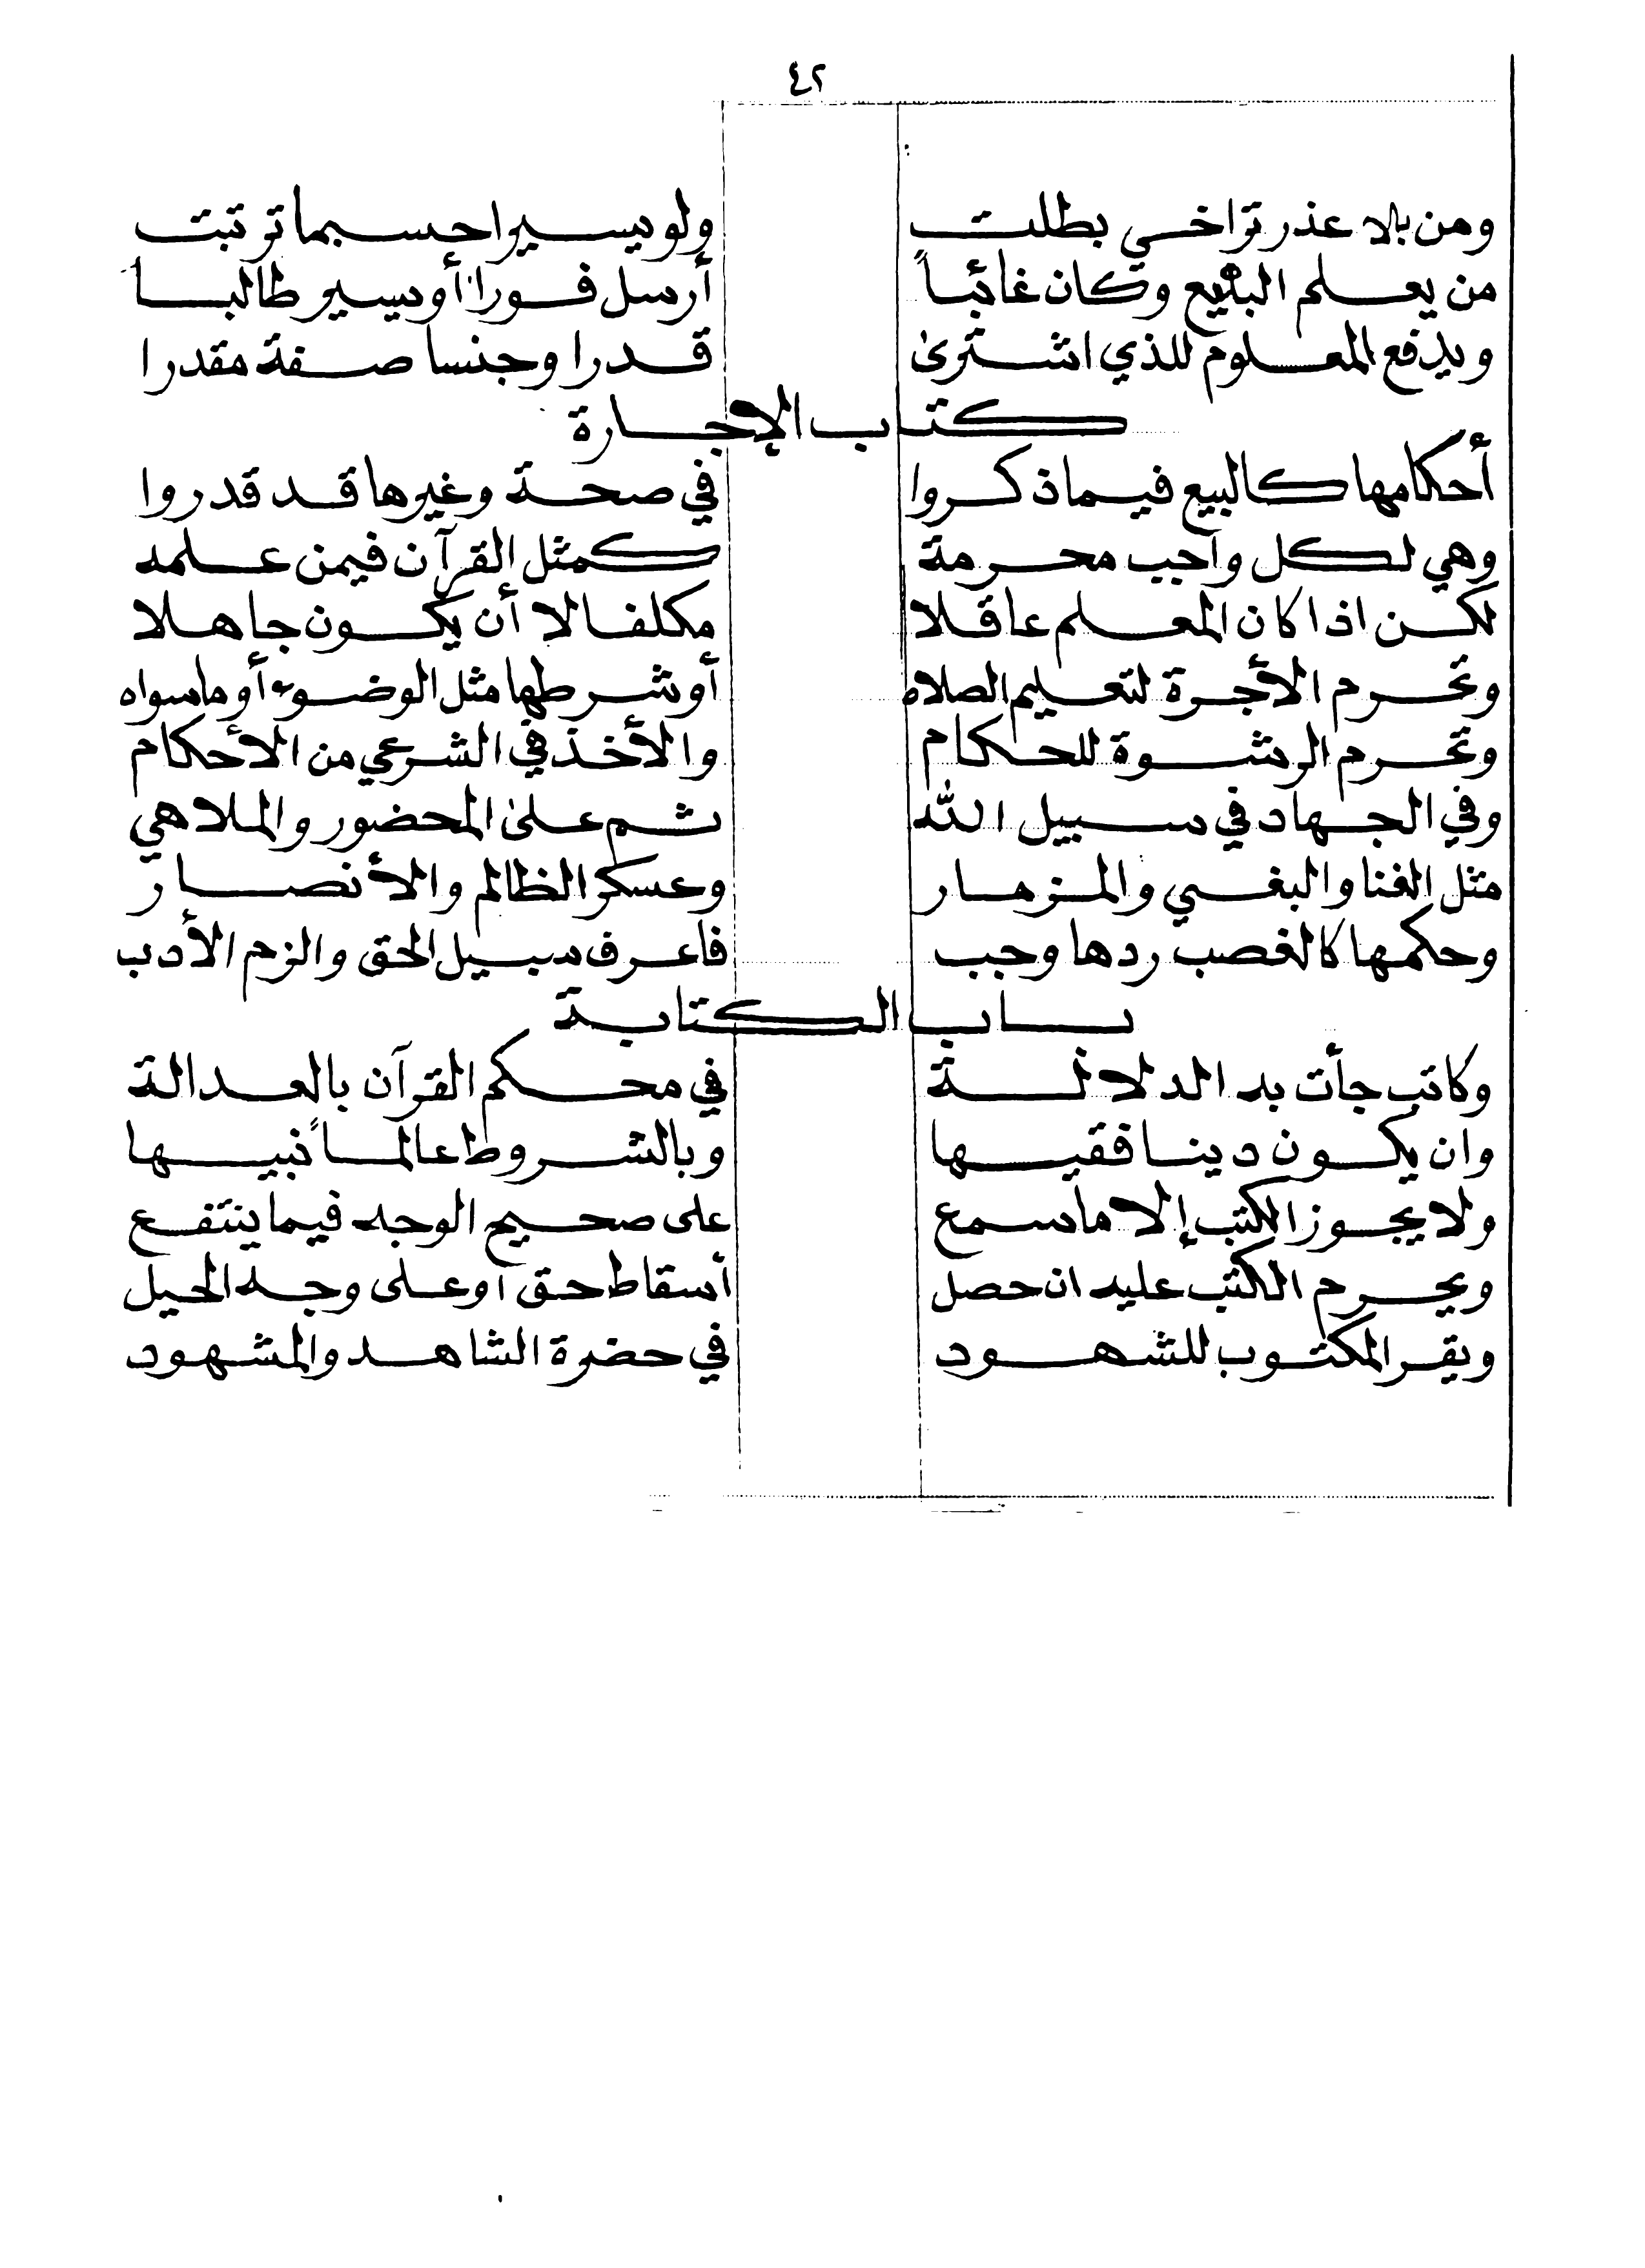 ٤٢
ومن بلا عذر تراخي بطلت ولو يسيرا حسبما ترتبت
من يعلم البيع وكان غائباً أرسل فورا أو يسير طالبا
ويدفع المعلوم للذي اشترىٰ قدرا وجنسا صفة مقدرا
كتاب الإجارة
أحكامها كالبيع فيما ذكروا في صحة وغيرها قد قدروا
وهي لكل واجب محرمة كمثل القرآن فيمن علمه
لكن اذا كان المعلم عاقلا مكلفا لا أن يكون جاهلا
وتحرم الأجرة لتعليم الصلاه أو شرطها مثل الوضوء أو ما سواه
وتحرم الرشوة للحكام والأخذ في الشرعي من الأحكام
وفي الجهاد في سبيل الله ثم علىٰ المحضور والملاهي
مثل الغنا والبغي والمزمار وعسكر الظالم والأنصار
وحكمها كالغصب ردها وجب فاعرف سبيل الحق والزم الأدب
باب الكتابة
وكاتب جأت به الدلالة في محكم القرآن بالعدالة
وان يكون دينا فقيها وبالشروط عالماً نبيها
ولا يجوز الكتب إلا ما سمع على صحيح الوجه فيما ينتفع
ويحرم الكتب عليه ان حصل أسقاط حق أو على وجه الحيل
ويقر المكتوب للشهود في حضرة الشاهد والمشهود